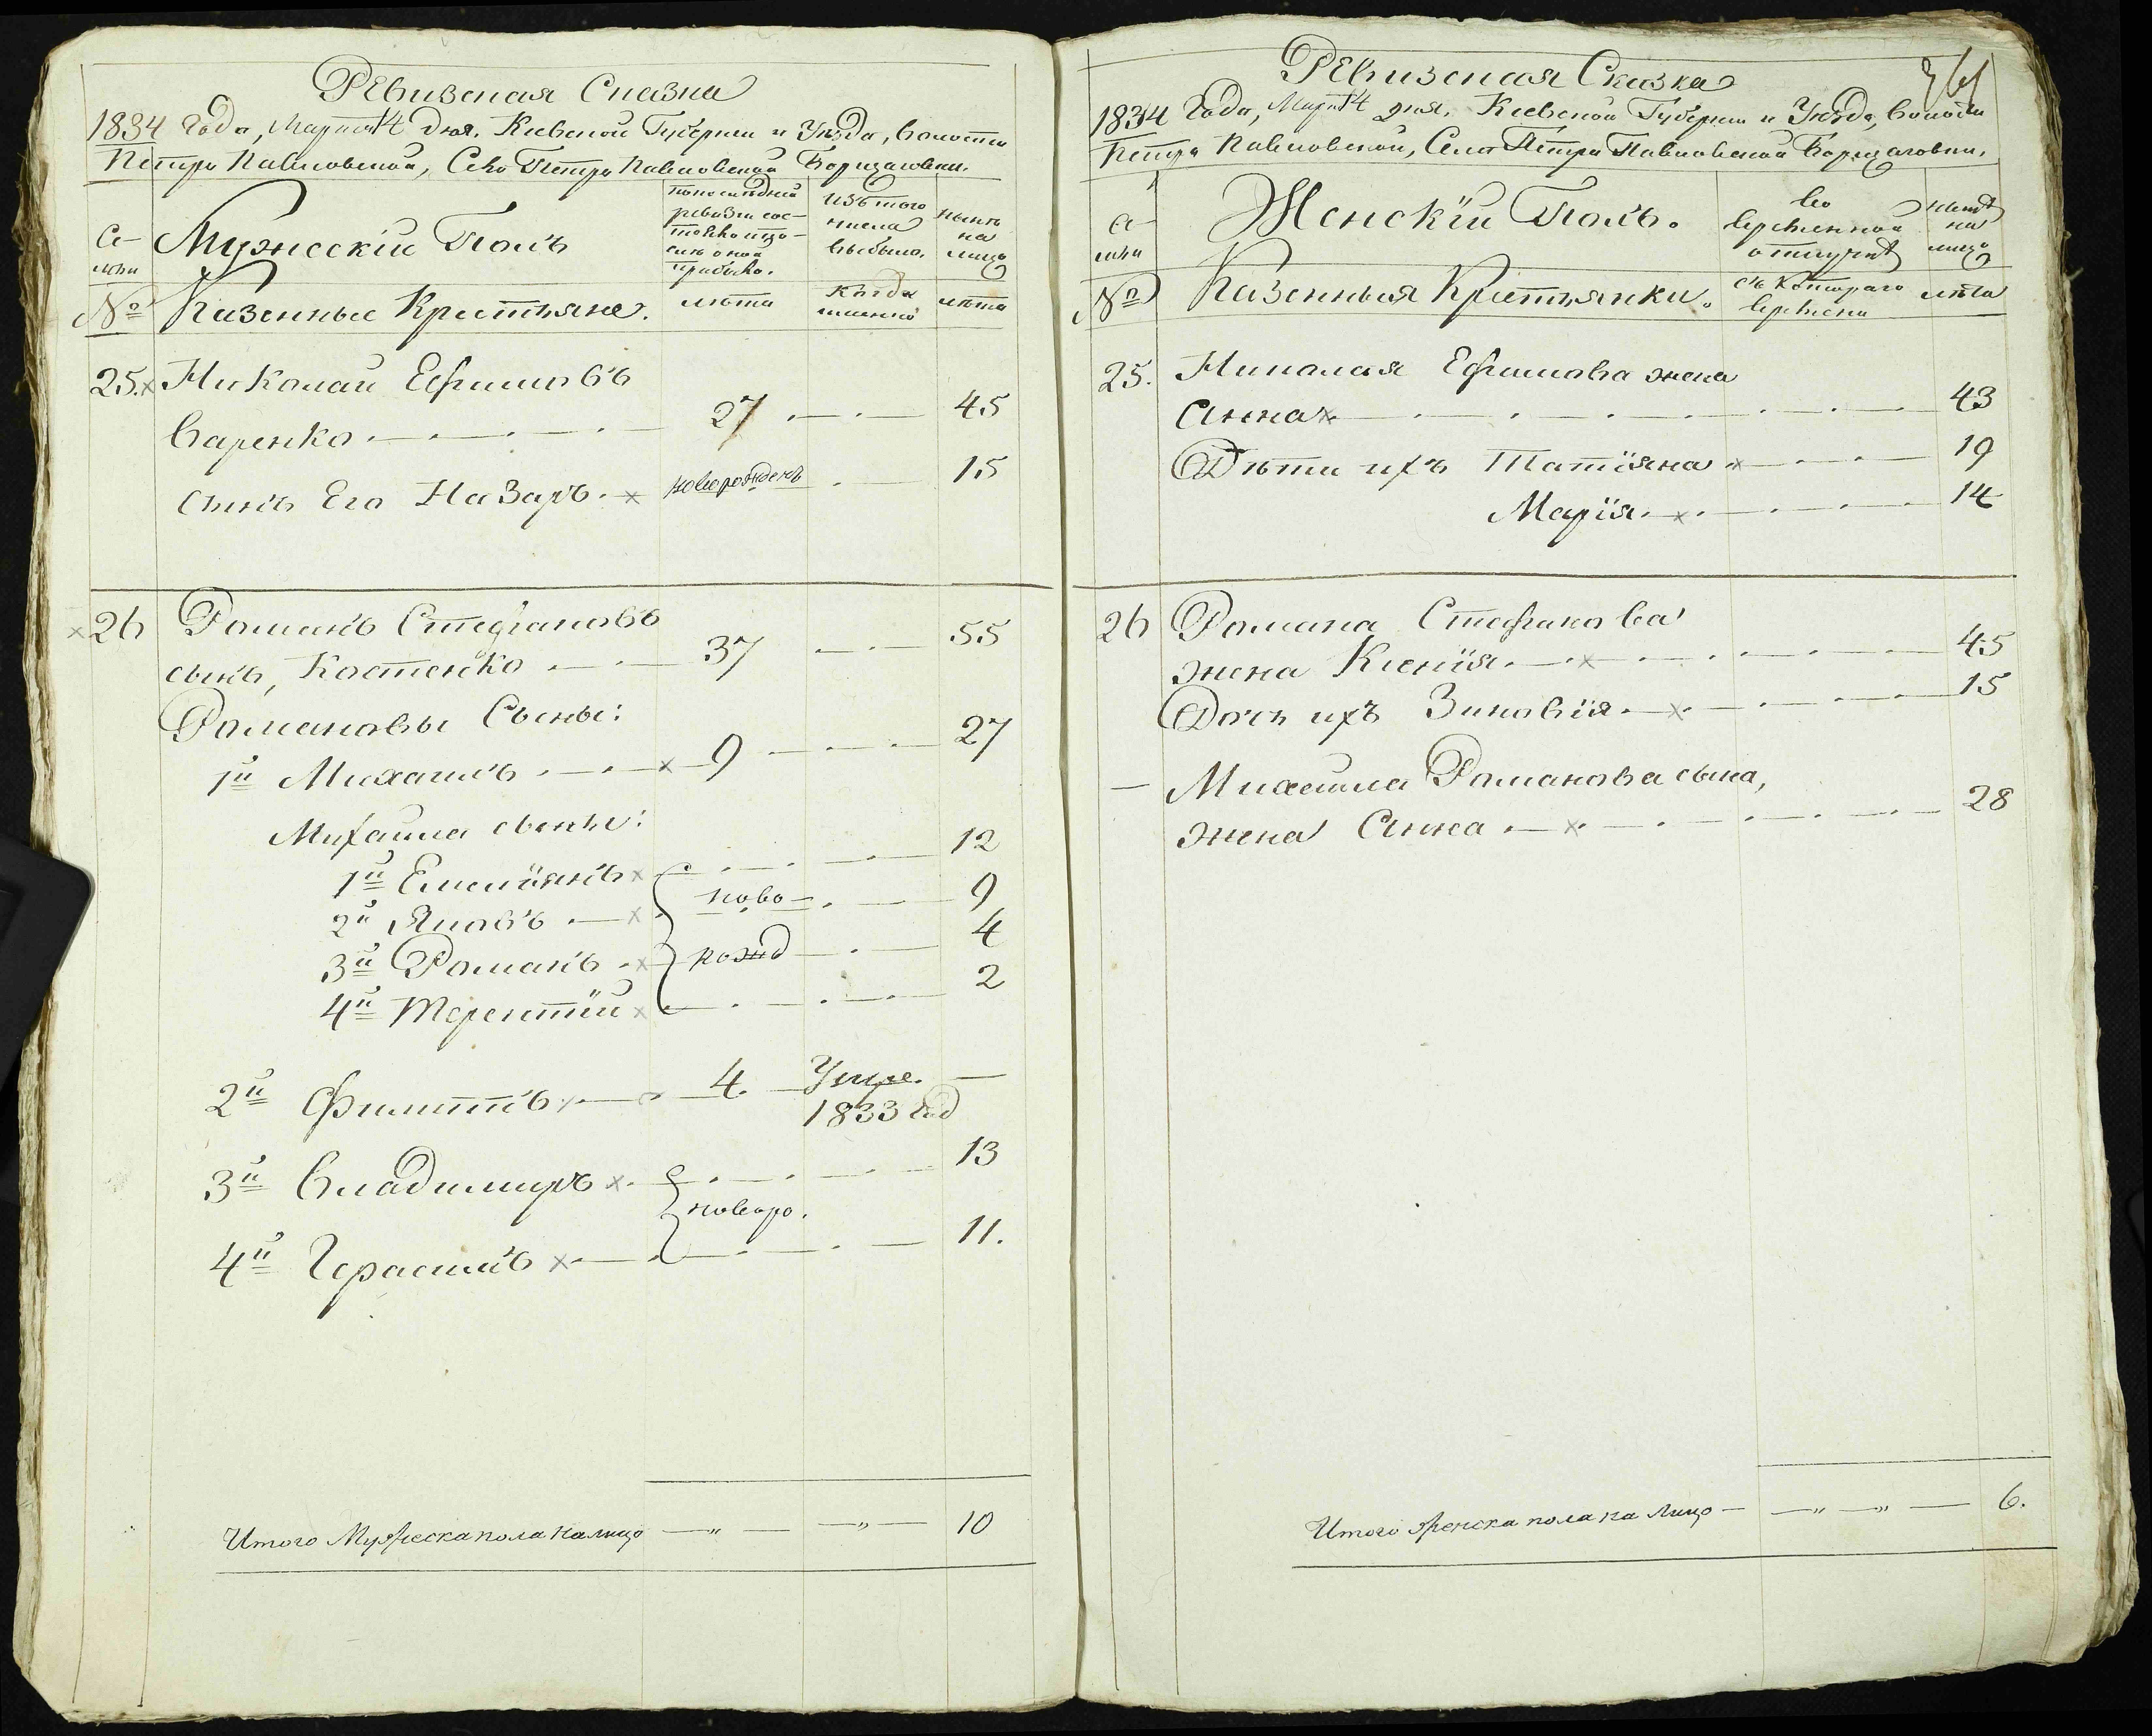 Ревизская Сказка
1834 Года, Марта 14 дня. Киевской Губернии и Уезда, волости
Петро Павловской, Села Петро Павловской Борщаговки.
Се-
мьи
Мужеский Полъ
по последней
ревизии сос-
тояло и по-
сле оной
прибыло.
Изъ того
числа
выбыло.
ныне
на
лицо
№
Казенные Крестьяне.
лета
Когда
именно
лета
25. Николай Ефимовъ
Варенко 27 45
сынъ Его Назаръ. новорожденъ 15
26 Романъ Стефановъ
сынъ, Костенко 37 55
Романовы Сыны:
1й Михаилъ 9 27
Михаила сыны:
1й Емелиянъ 12
2й Яковъ ново- 9
3й Романъ рожд 4
4й Терентий 2
2й Филиппъ 4. Умре.
1833 год
3й Владимиръ 13
новоро.
4й Герасимъ 11.
Итого Мужеска пола на лицо — „ — — „ — 10
Ревизская Сказка
1834 Года, Марта 14 дня. Киевской Губернии и Уезда, волости
Петро Павловской, Села Петро Павловской Борщаговки.
Се-
мьи
Женскїй Полъ.
Во
временной
отлучке
ныне
на
лицо
№
Казенныя Крестьянки.
съ Котораго
времени
лета
25. Николая Ефимова жена
Анна 43
Дети ихъ Татїяна 19
Марїя. 14
26 Романа Стефанова
жена Ксенїя. 45
Дочь ихъ Зиновїя. 15
— Михаила Романова сына,
жена Анна 28
Итого женска пола на лицо — — „ — „ — 6.